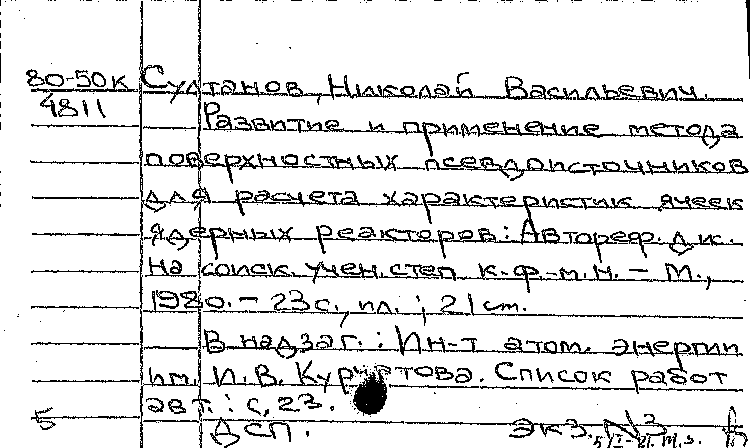 80-50к Султанов, Николай Васильевич.
4811 Развитие и применение метода
поверхностных псевдоисточников
для расчета характеристик ячеек
ядерных реакторов: Автореф. дис.
на соиск. учен. степ. к.ф.-м.н. – М.,
1980. – 23 с., ил.; 21 см.
В надзаг.: Ин-т атом. энергии
им. И. В. Курчатова. Список работ
авт.: с. 23.
б ДСП. экз. N3